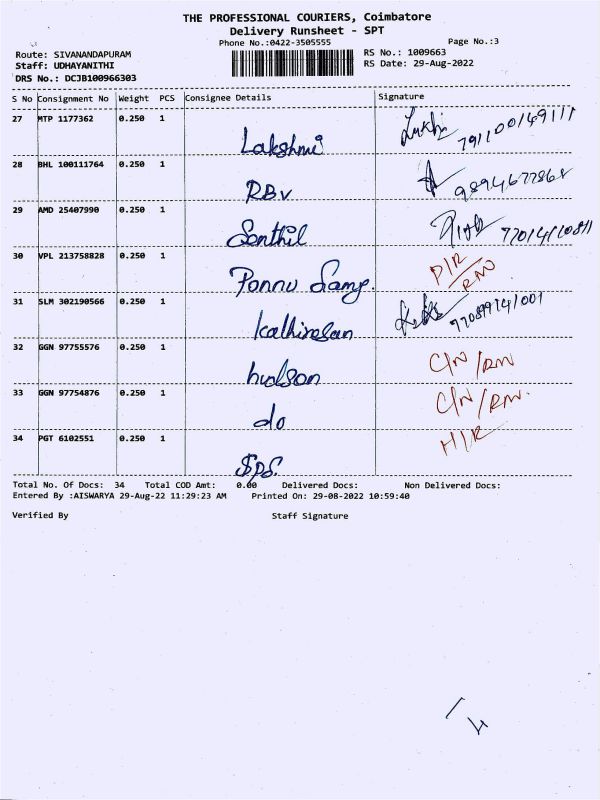 THE PROFESSIONAL COURIERS, Coimbatore
Delivery Runsheet - SPT
Phone No.:0422-3505555 Page No.:3
Route: SIVANANDAPURAM RS No.: 1009663
Staff: UDHAYANITHI RS Date: 29-Aug-2022
DRS No.: DCJB100966303
S No Consignment No Weight PCS Consignee Details Signature
27 MTP 1177362 0.250 1
Lakshmi
28 BHL 100111764 0.250 1
RBV
29 AMD 25407990 0.250 1
Senthil
30 VPL 213758828 0.250 1 D/R
Ponnu Samy. RNO
31 SLM 302190566 0.250 1
Kathiresan
32 GGN 97755576 0.250 1 C/N / RNO
hudson
33 GGN 97754876 0.250 1 C/N / RNO.
do
34 PGT 6102551 0.250 1 H/R
SPS.
Total No. Of Docs: 34 Total COD Amt: 0.00 Delivered Docs: Non Delivered Docs:
Entered By :AISWARYA 29-Aug-22 11:29:23 AM Printed On: 29-08-2022 10:59:40
Verified By Staff Signature